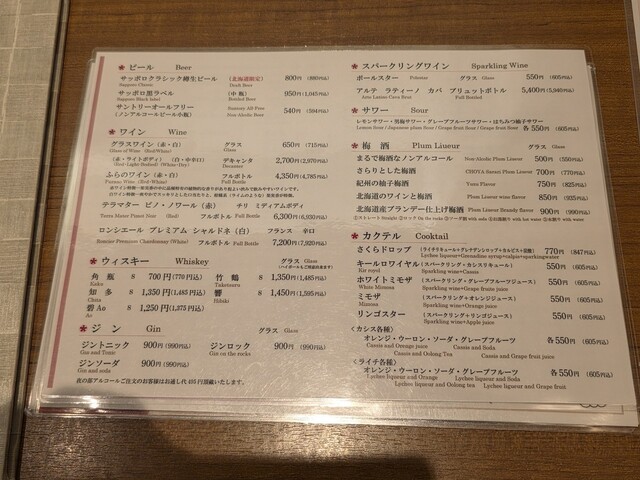 ＊ ビール Beer
サッポロクラシック樽生ビール （北海道限定） 800円 (880円)
Sapporo Classic Draft Beer
サッポロ黒ラベル （中瓶） 950円(1,045円)
Sapporo Black label Bottled Beer
サントリーオールフリー Suntory All-Free 540円 (594円)
（ノンアルコールビール小瓶） Non Alcohol Beer
＊ ワイン Wine
グラスワイン（赤・白） グラス 650円 (715円)
Glass of Wine (Red/White) Glass
（赤・ライトボディ）（白・中辛口） デキャンタ 2,700円(2,970円)
(Red=Light-Bodied) (White=Dry) Decanter
ふらのワイン（赤・白） フルボトル 4,350円(4,785円)
Furano Wine (Red/White) Full Bottle
テラマター ピノ・ノワール（赤） チリ ミディアムボディ
Terra Mater Pinot Noir (Red) フルボトル Full Bottle 6,300円(6,930円)
ロンシエール プレミアム シャルドネ（白） フランス 辛口
Roncier Premium Chardonnay (White) フルボトル Full Bottle 7,200円(7,920円)
＊ ウィスキー Whiskey グラス Glass
（ハイボールもご用意出来ます）
角瓶 S 700円(770円込) 竹鶴 S 1,350円(1,485円)
Kaku Taketsuru
知多 S 1,350円(1,485円込) 響 S 1,450円(1,595円)
Chita Hibiki
碧Ao S 1,250円(1,375円込)
Ao
＊ ジン Gin グラス Glass
ジントニック 900円(990円込) ジンロック 900円(990円込)
Gin and Tonic Gin on the rocks
ジンソーダ 900円(990円込)
Gin and soda
夜の部アルコールご注文のお客様はお通し代495円頂戴いたします。
＊ スパークリングワイン Sparkling Wine
ポールスター Polestar グラス Glass 550円 (605円込)
アルテ ラティーノ カバ ブリュットボトル 5,400円(5,940円込)
Arte Latino Cava Brut Full Bottled
＊ サワー Sour
レモンサワー・男梅サワー・グレープフルーツサワー・はちみつ柚子サワー
Lemon Sour / Japanese plum Sour / Grape fruit Sour / 各550円 (605円込)
＊ 梅酒 Plum Liueur グラス Glass
まるで梅酒なノンアルコール Non Alcohlic Plum Liqueur 500円 (550円込)
さらりとした梅酒 CHOYA Sarari Plum Liqueur 700円 (770円込)
紀州の柚子梅酒 Yuzu Flavor 750円 (825円込)
北海道のワインと梅酒 Plum Liqueur wine flavor 850円 (935円込)
北海道産ブランデー仕上げ梅酒 Plum Liqueur Brandy flavor 900円 (990円込)
＊ カクテル Cooktail
さくらドロップ （ライチリキュール＋グレナデンシロップ＋カルピス＋炭酸） 770円 (847円込)
Lychee liqueur+Grenadine syrup+calpis+sparkingwater
キールロワイヤル （スパークリング・カシスリキュール） 550円 (605円込)
Kir royal Sparkling wine+Cassis
ホワイトミモザ （スパークリング・グレープフルーツジュース） 550円 (605円込)
White Mimosa Sparkling wine+Grape fruit juice
ミモザ （スパークリング＋オレンジジュース） 550円 (605円込)
Mimosa Sparkling wine+Orange juice
リンゴスター （スパークリング＋リンゴジュース） 550円 (605円込)
Sparkling wine+Apple juice
<カシス各種>
オレンジ・ウーロン・ソーダ・グレープフルーツ 各550円 (605円込)
Cassis and Orange juice Cassis and Soda
Cassis and Oolong Tea Cassis and Grape fruit juice
<ライチ各種>
オレンジ・ウーロン・ソーダ・グレープフルーツ 各550円 (605円込)
Lychee liqueur and Orange Lychee liqueur and Soda
Lychee liqueur and Oolong tea Lychee liqueur and Grape fruit